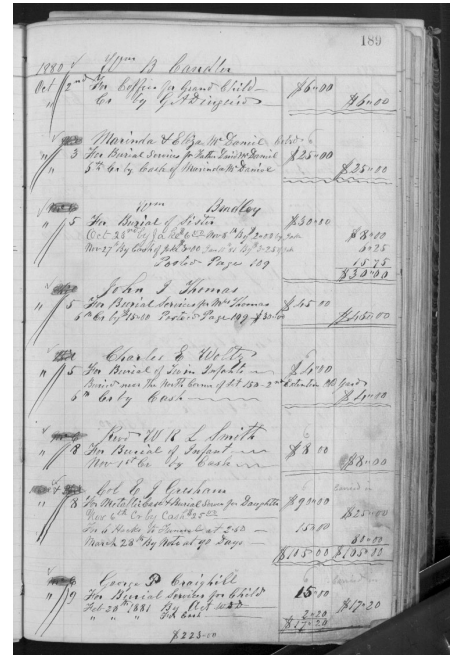 189
1880 Wm B Candler
Oct 2nd For Coffin for Grand Child $6.00
" Cr by G A $6.00
Marinda & Eliza McDaniel Col'd
" 3 For Burial Services for Father David McDaniel $25.00
" 5th Cr by Cash of Marinda McDaniel $25.00
Wm Bradley
" 5 For Burial of Sister $30.00
Oct 28th by $8.00
Nov 27 By Cash of 5.25
Posted Page 109 15.75
$30.00
John J Thomas
" 5 For Burial Services for Mrs Thomas $45.00
6th Cr by $15.00 Posted Page 199 $30.00 $45.00
Charles E Woltz
" 5 For Burial of Twin Infants $4.00
Buried near the North Corner of lot 150 - 2nd Extention Old Yard
6th Cr by Cash $4.00
Revd W R L Smith
" 8 For Burial of Infant $8.00
Nov 1st Cr by Cash $8.00
Col E J Gresham
" 8 For Metallic Case & Burial Serves for Daughter $90.00
Nov 6th Cr by Cash $25.00 $25.00
For 6 Hacks to Funeral at 2.50 15.00
March 28th By Note at 90 Days 80.00
$105.00 $105.00
George P Craighill
" 9 For Burial Services for Child 15.00
Feb 28th 1881 By Act $17.20
" " " For 2.20
$17.20
$223.00